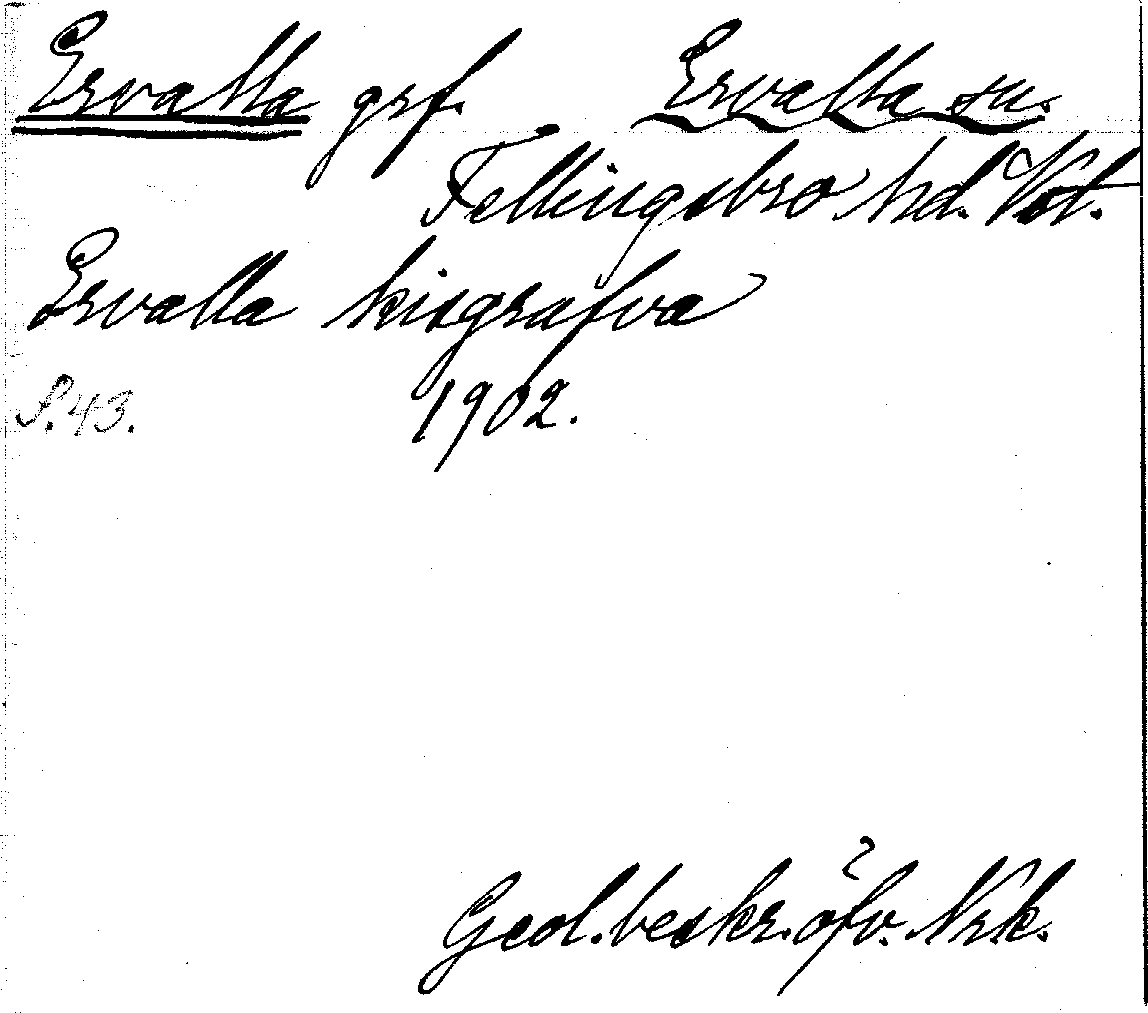 Ervalla grf. Ervalla sn.
Fellingsbro hd. Vstl.
Ervalla kisgrufva
S. 43. 1902.
Geol. beskr. öfv. Nrk.